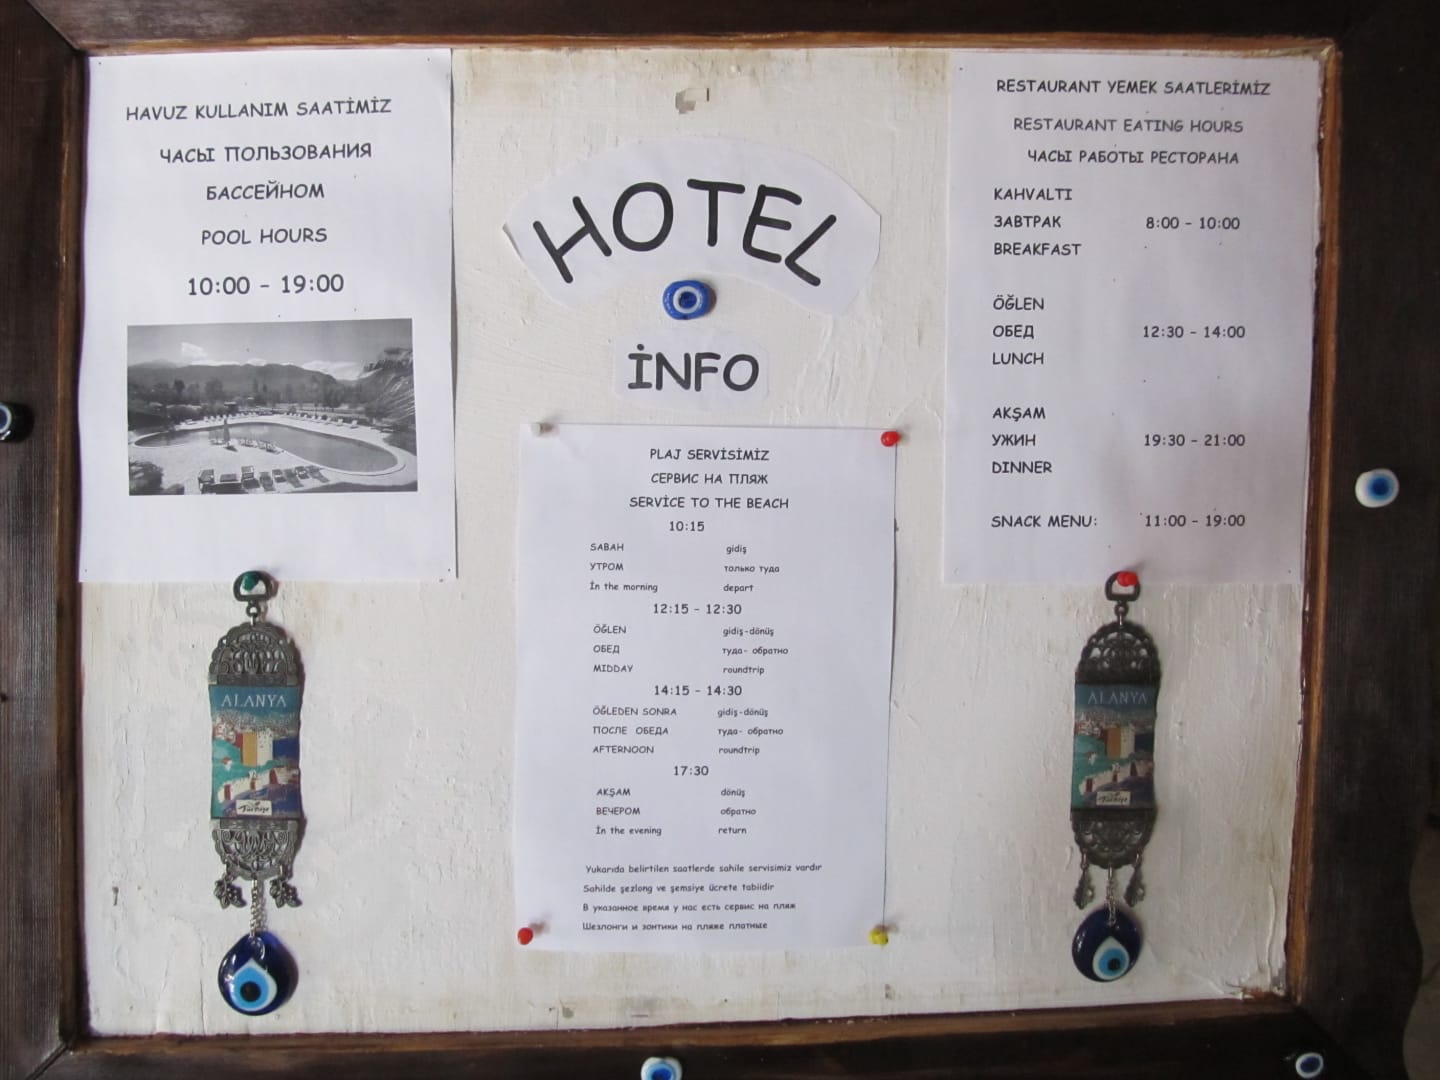 HAVUZ KULLANIM SAATİMİZ
ЧАСЫ ПОЛЬЗОВАНИЯ
БАССЕЙНОМ
POOL HOURS
10:00 - 19:00
HOTEL
İNFO
PLAJ SERVİSİMİZ
СЕРВИС НА ПЛЯЖ
SERVİCE TO THE BEACH
10:15
SABAH gidiş
УТРОМ только туда
İn the morning depart
12:15 - 12:30
ÖĞLEN gidiş-dönüş
ОБЕД туда- обратно
MIDDAY roundtrip
14:15 - 14:30
ÖĞLEDEN SONRA gidiş-dönüş
ПОСЛЕ ОБЕДА туда- обратно
AFTERNOON roundtrip
17:30
AKŞAM dönüş
ВЕЧЕРОМ обратно
İn the evening return
Yukarıda belirtilen saatlerde sahile servisimiz vardır
Sahilde şezlong ve şemsiye ücrete tabiidir
В указанное время у нас есть сервис на пляж
Шезлонги и зонтики на пляже платные
RESTAURANT YEMEK SAATLERİMİZ
RESTAURANT EATING HOURS
ЧАСЫ РАБОТЫ РЕСТОРАНА
KAHVALTI
ЗАВТРАК 8:00 - 10:00
BREAKFAST
ÖĞLEN
ОБЕД 12:30 - 14:00
LUNCH
AKŞAM
УЖИН 19:30 - 21:00
DINNER
SNACK MENU: 11:00 - 19:00
ALANYA
Türkiye
ALANYA
Türkiye